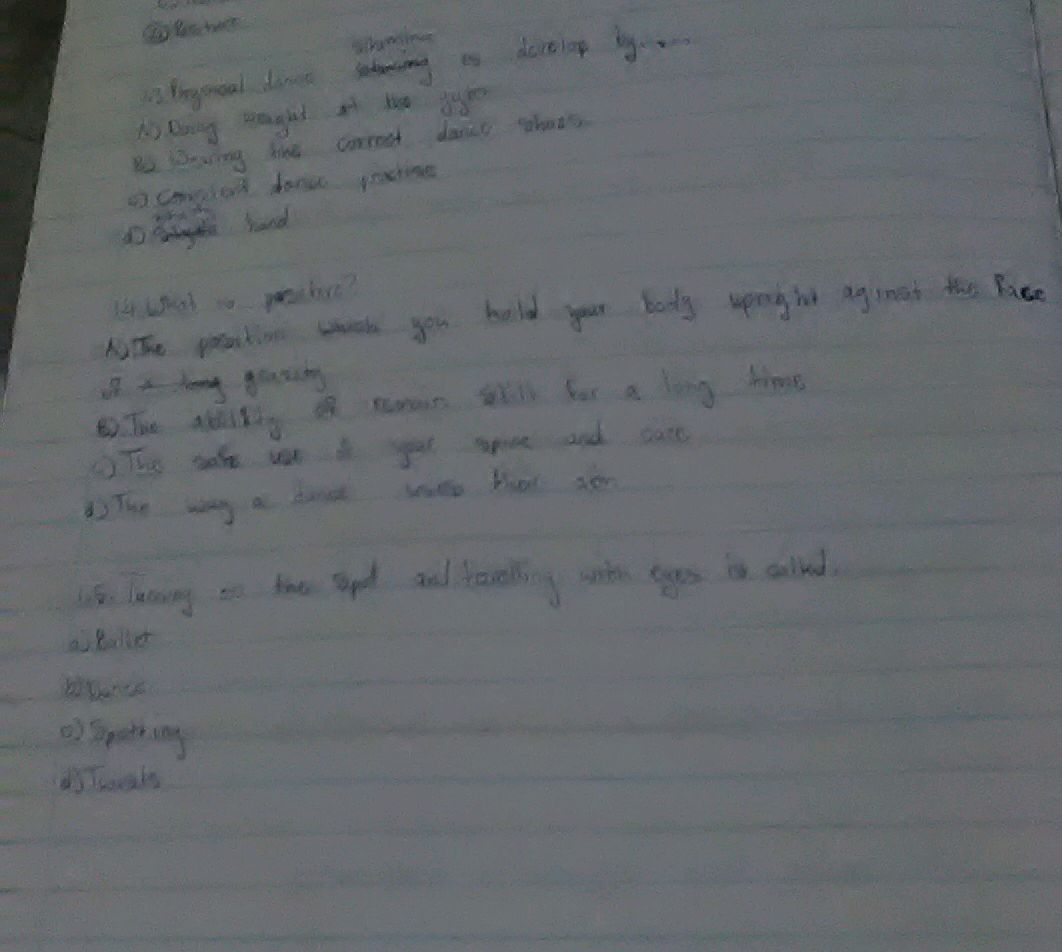 13. Physical dance stamina is develop by.....
A) Doing weight at the gym
B) Wearing the correct dance shoes
c) Consistent dance practise
d) hand
14. What is posture?
A) The position which you hold your body upright against the Force
of gravity
B) The ability of remain still for a long time
c) The safe use of your spine and core
d) The way a dance uses their
1.5. Turning on the spot and travelling with eyes is called.
a) Ballet
b) Dance
c) Spotting
d) Travels